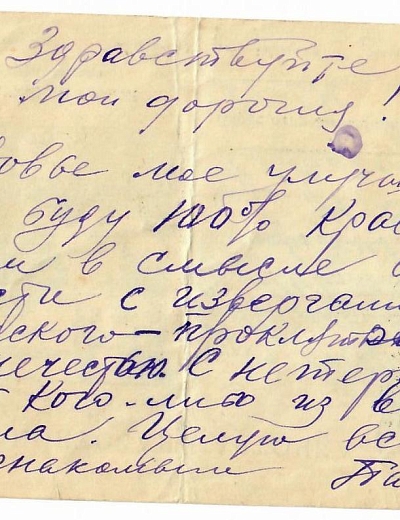 Здравствуйте
мои дорогия!
ровье мое улучша
буду 100% Крас
м в смысле
сти с извергами
ского-проклято
нечестью. С нетер
кого-либо из в
ма. Целую вс
знакомым Па